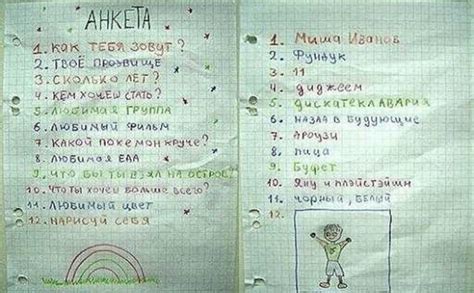 АНКЕТА
1. КАК ТЕБЯ ЗОВУТ?
2. ТВОЁ ПРОЗВИЩЕ
3. СКОЛЬКО ЛЕТ?
4. КЕМ ХОЧЕШ СТАТЬ?
5. ЛЮБИМАЯ ГРУППА
6. ЛЮБИМЫЙ ФИЛЬМ
7. КАКОЙ ПОКЕМОН КРУЧЕ?
8. ЛЮБИМАЯ ЕДА
9. ЧТО БЫ ТЫ ВЗЯЛ НА ОСТРОВ?
10. ЧТО ТЫ ХОЧЕШ БОЛЬШЕ ВСЕГО?
11. ЛЮБИМЫЙ ЦВЕТ
12. НАРИСУЙ СЕБЯ
1. Миша Иванов
2. Фунтук
3. 11
4. диджеем
5. ДИСКАТЕКЛАВАРИЯ
6. НАЗАД В БУДУЮЩИЕ
7. АРОУЗИ
8. ПИЦА
9. Буфет
10. Яну и плэйстэйшн
11. чорный, белый
12.